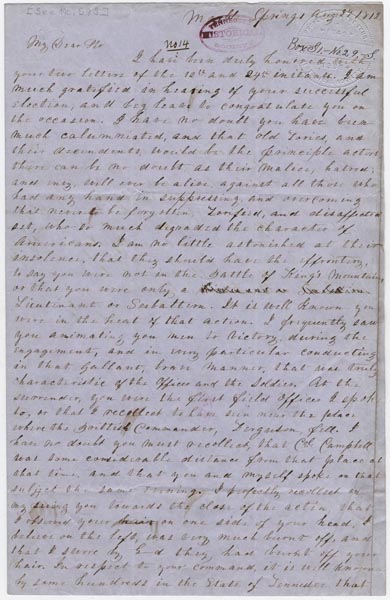 [See No. 6 & 8]
Springs Augt 17 1812
TENNESSEE
HISTORICAL
SOCIETY
My Dear No
No 14
Box S1-No 29-S
I have been duly honored with
your two letters of the 12th and 24th instants. I am
much gratified in hearing of your successful
election, and beg leave to congratulate you on
the occasion. I have no doubt you have been
much calumniated, and that old Tories, and
their decendents, would be the principle actors
there can be no doubt as their malice, hatred,
and envy will ever be alive against all those who
had any hand in suppressing, and overcoming
that never to be forgotten, Torified, and disaffected
set, who so much degraded the character of
Americans. I am no little astonished at their
insolence, that they should have the effrontery
to say you were not in the Battle of King's Mountain
or that you were only a
Lieutenant or Subaltern. It is well known you
were in the heat of that action. I frequently saw
you animating you men to victory during the
engagement, and in very particular conducting
in that gallant, brave manner, that was truly
characteristic of the Officer and the Soldier. At the
surrender, you were the first field officer I spoke
to, or that I recollect to have seen near the place
where the British Commander, Ferguson fell. I
have no doubt you must recollect, that Col Campbell
was some considerable distance from that place at
that time, and that you and myself spoke on that
subject the same evening. I perfectly recollect in
my seeing you towards the close of the action, that
I observed your on one side of your head, I
believe on the left, was very much burnt off, and
that I swore by G-d they had burnt off your
hair. In respect to your command, it is well known
by some hundreds in the State of Tennessee that